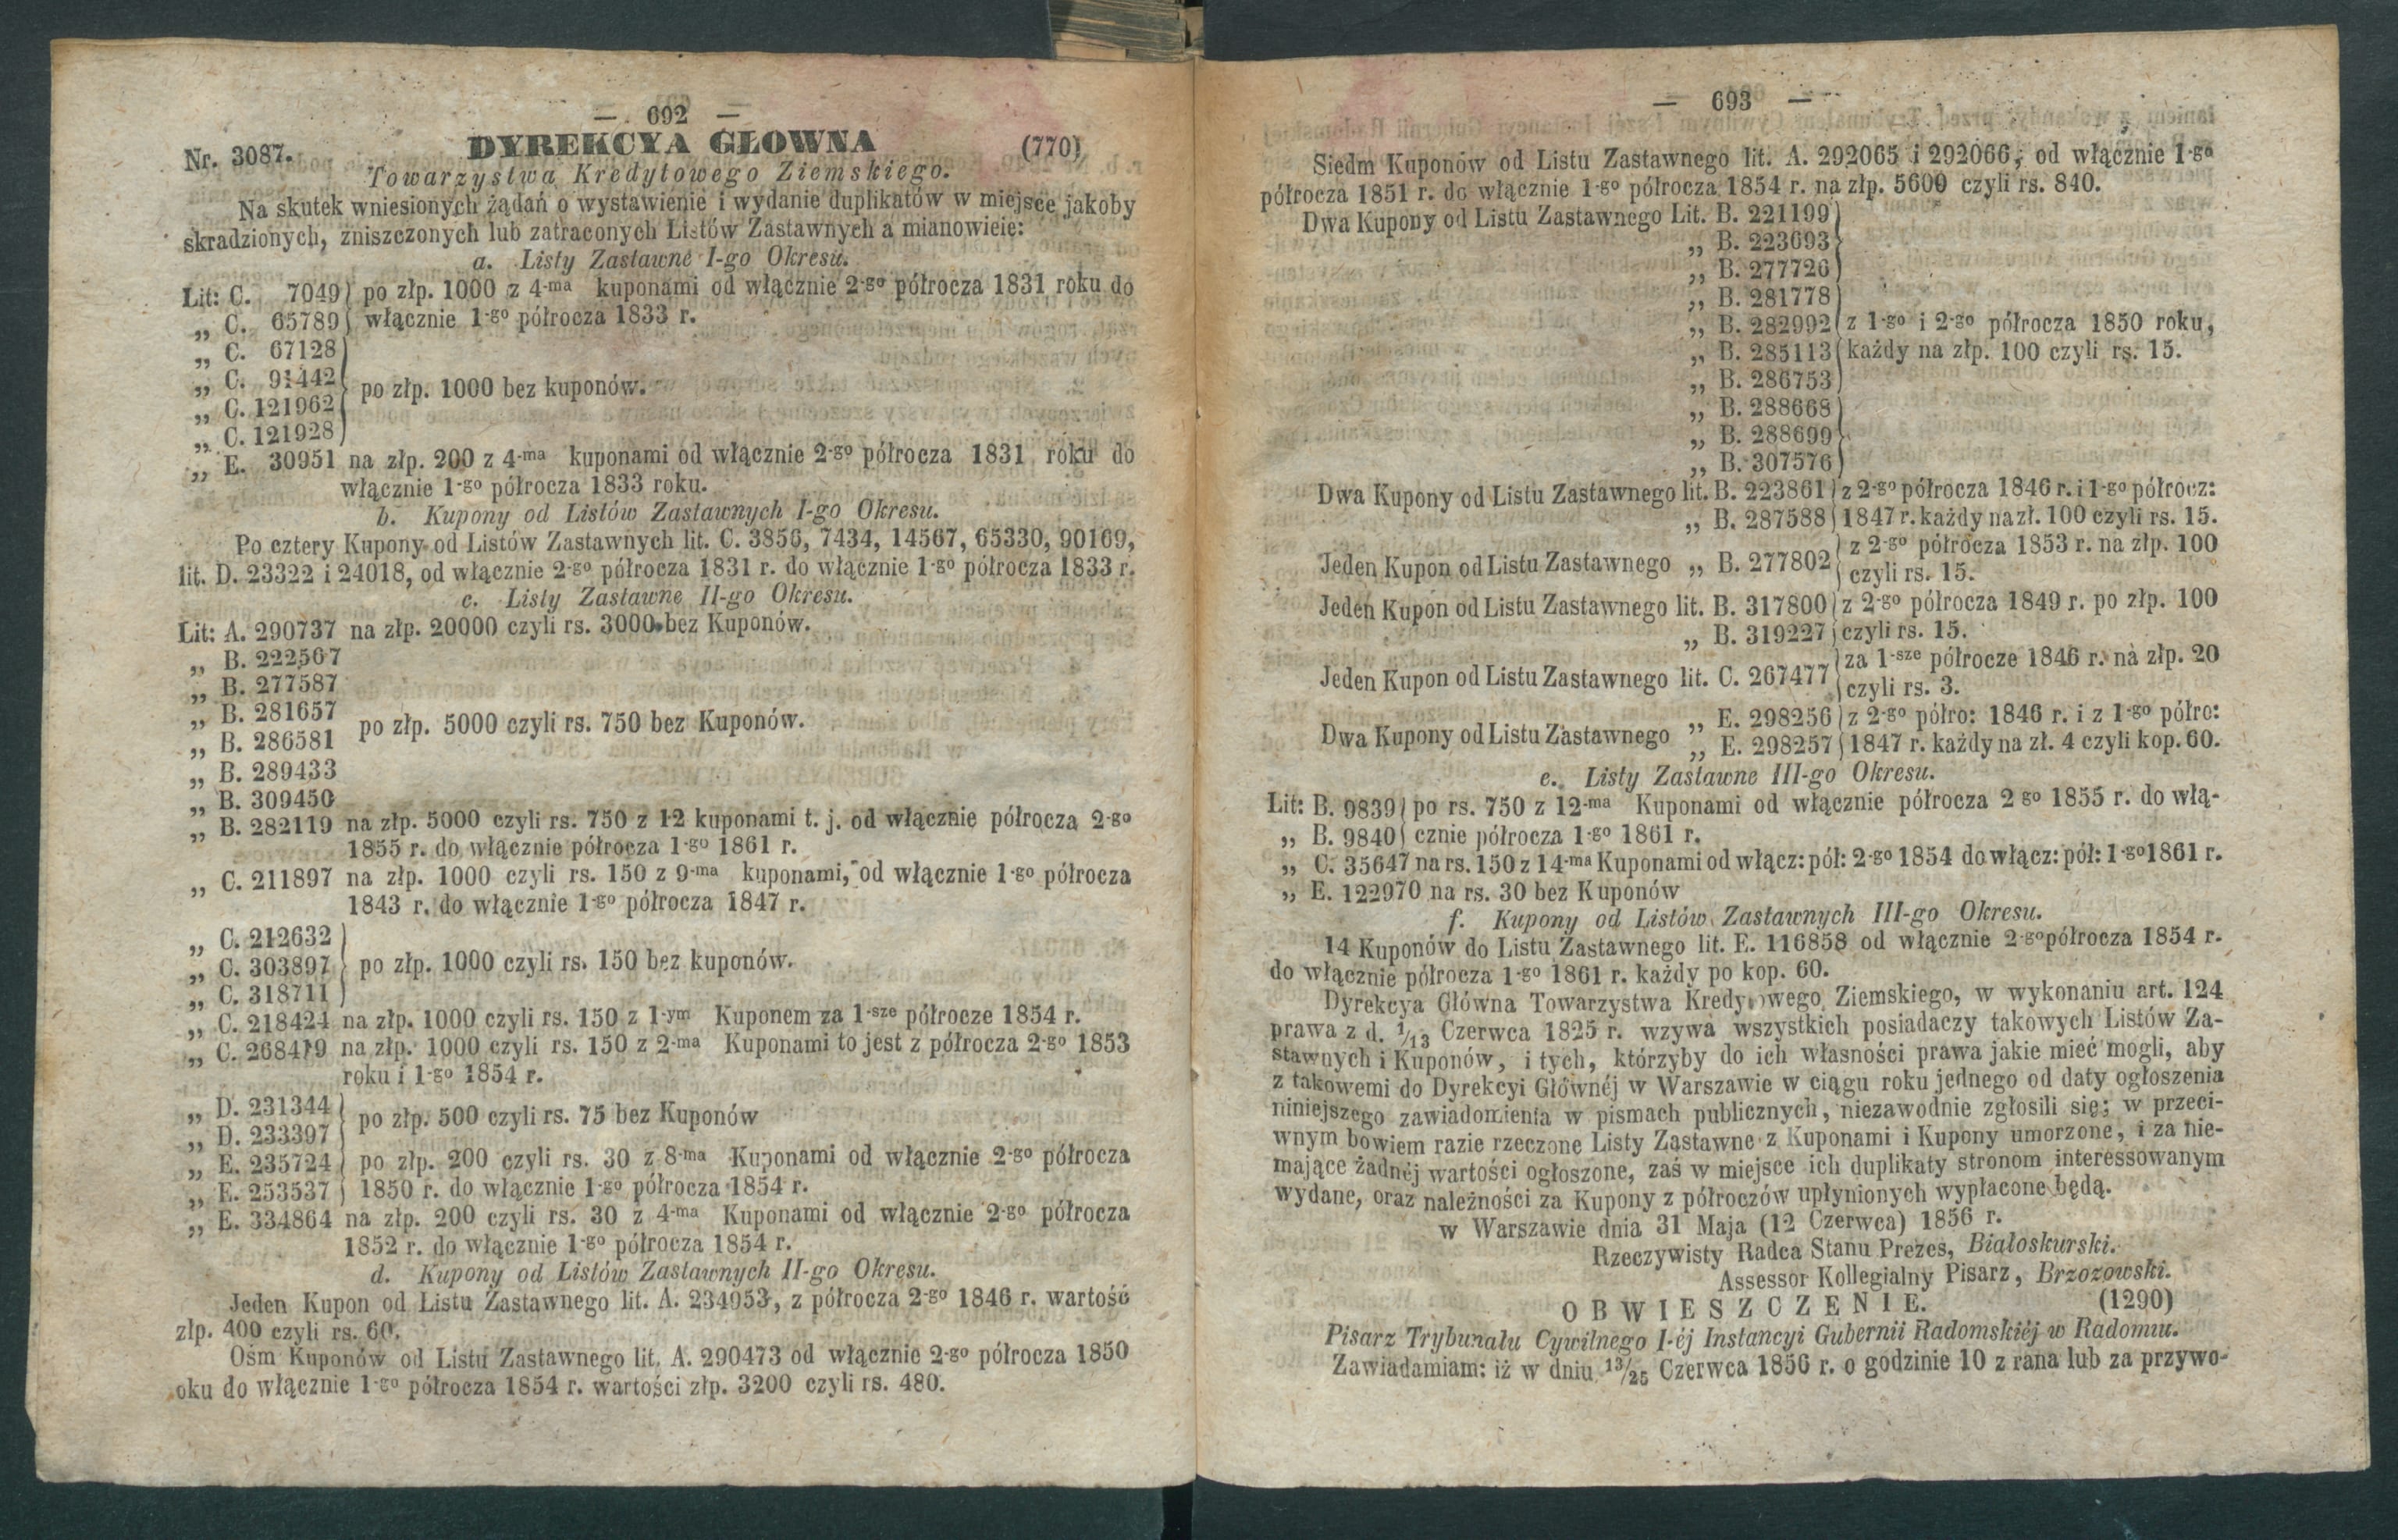 — 692 —
Nr. 3087. DYREKCYA GŁOWNA (770)
Towarzystwa Kredytowego Ziemskiego.
Na skutek wniesionych żądań o wystawienie i wydanie duplikatów w miejsce jakoby
skradzionych, zniszczonych lub zatraconych Listów Zastawnych a mianowicie:
a. Listy Zastawne I-go Okresu.
Lit: C. 7049 } po złp. 1000 z 4-ma kuponami od włącznie 2-go półrocza 1831 roku do
„ C. 65789 } włącznie 1-go półrocza 1833 r.
„ C. 67128
„ C. 91442
po złp. 1000 bez kuponów.
„ C. 121962
„ C. 121928
„ E. 30951 na złp. 200 z 4-ma kuponami od włącznie 2-go półrocza 1831 roku do
włącznie 1-go półrocza 1833 roku.
b. Kupony od Listów Zastawnych I-go Okresu.
Po cztery Kupony od Listów Zastawnych lit. C. 3856, 7434, 14567, 65330, 90169,
lit. D. 23322 i 24018, od włącznie 2-go półrocza 1831 r. do włącznie 1-go półrocza 1833 r.
c. Listy Zastawne II-go Okresu.
Lit: A. 290737 na złp. 20000 czyli rs. 3000 bez Kuponów.
„ B. 222567
„ B. 277587
„ B. 281657
po złp. 5000 czyli rs. 750 bez Kuponów.
„ B. 286581
„ B. 289433
„ B. 309450
„ B. 282119 na złp. 5000 czyli rs. 750 z 12 kuponami t. j. od włącznie półrocza 2-go
1855 r. do włącznie półrocza 1-go 1861 r.
„ C. 211897 na złp. 1000 czyli rs. 150 z 9-ma kuponami, od włącznie 1-go półrocza
1843 r. do włącznie 1-go półrocza 1847 r.
„ C. 212632
„ C. 303897 } po złp. 1000 czyli rs. 150 bez kuponów.
„ C. 318711
„ C. 218424 na złp. 1000 czyli rs. 150 z 1-ym Kuponem za 1-sze półrocze 1854 r.
„ C. 268419 na złp. 1000 czyli rs. 150 z 2-ma Kuponami to jest z półrocza 2-go 1853
roku i 1-go 1854 r.
„ D. 231344
po złp. 500 czyli rs. 75 bez Kuponów
„ D. 233397
„ E. 235724 } po złp. 200 czyli rs. 30 z 8-ma Kuponami od włącznie 2-go półrocza
„ E. 253537 } 1850 r. do włącznie 1-go półrocza 1854 r.
„ E. 334864 na złp. 200 czyli rs. 30 z 4-ma Kuponami od włącznie 2-go półrocza
1852 r. do włącznie 1-go półrocza 1854 r.
d. Kupony od Listów Zastawnych II-go Okresu.
Jeden Kupon od Listu Zastawnego lit. A. 234953, z półrocza 2-go 1846 r. wartość
złp. 400 czyli rs. 60.
Ośm Kuponów od Listu Zastawnego lit. A. 290473 od włącznie 2-go półrocza 1850
oku do włącznie 1-go półrocza 1854 r. wartości złp. 3200 czyli rs. 480.
— 693 —
Siedm Kuponów od Listu Zastawnego lit. A. 292065 i 292066, od włącznie 1-go
półrocza 1851 r. do włącznie 1-go półrocza 1854 r. na złp. 5600 czyli rs. 840.
Dwa Kupony od Listu Zastawnego Lit. B. 221199
„ B. 223693
„ B. 277726
„ B. 281778
„ B. 282992 } z 1-go i 2-go półrocza 1850 roku,
„ B. 285113 } każdy na złp. 100 czyli rs. 15.
„ B. 286753
„ B. 288668
„ B. 288699
„ B. 307576
Dwa Kupony od Listu Zastawnego lit. B. 223861 } z 2-go półrocza 1846 r. i 1-go półrocz:
„ B. 287588 } 1847 r. każdy na zł. 100 czyli rs. 15.
Jeden Kupon od Listu Zastawnego „ B. 277802 } z 2-go półrocza 1853 r. na złp. 100
czyli rs. 15.
Jeden Kupon od Listu Zastawnego lit. B. 317800 } z 2-go półrocza 1849 r. po złp. 100
„ B. 319227 } czyli rs. 15.
Jeden Kupon od Listu Zastawnego lit. C. 267477 } za 1-sze półrocze 1846 r. na złp. 20
czyli rs. 3.
Dwa Kupony od Listu Zastawnego „ E. 298256 } z 2-go półro: 1846 r. i z 1-go półro:
„ E. 298257 } 1847 r. każdy na zł. 4 czyli kop. 60.
e. Listy Zastawne III-go Okresu.
Lit: B. 9839 } po rs. 750 z 12-ma Kuponami od włącznie półrocza 2 go 1855 r. do włą-
„ B. 9840 } cznie półrocza 1-go 1861 r.
„ C. 35647 na rs. 150 z 14-ma Kuponami od włącz: pół: 2-go 1854 do włącz: pół: 1-go 1861 r.
„ E. 122970 na rs. 30 bez Kuponów
f. Kupony od Listów Zastawnych III-go Okresu.
14 Kuponów do Listu Zastawnego lit. E. 116858 od włącznie 2-go półrocza 1854 r.
do włącznie półrocza 1-go 1861 r. każdy po kop. 60.
Dyrekcya Główna Towarzystwa Kredytowego Ziemskiego, w wykonaniu art. 124
prawa z d. 1/13 Czerwca 1825 r. wzywa wszystkich posiadaczy takowych Listów Za-
stawnych i Kuponów, i tych, którzyby do ich własności prawa jakie mieć mogli, aby
z takowemi do Dyrekcyi Głównéj w Warszawie w ciągu roku jednego od daty ogłoszenia
niniejszego zawiadomienia w pismach publicznych, niezawodnie zgłosili się; w przeci-
wnym bowiem razie rzeczone Listy Zastawne z Kuponami i Kupony umorzone, i za nie-
mające żadnéj wartości ogłoszone, zaś w miejsce ich duplikaty stronom interessowanym
wydane, oraz należności za Kupony z półroczów upłynionych wypłacone będą.
w Warszawie dnia 31 Maja (12 Czerwca) 1856 r.
Rzeczywisty Radca Stanu Prezes, Białoskurski.
Assessor Kollegialny Pisarz, Brzozowski.
OBWIESZCZENIE. (1290)
Pisarz Trybunału Cywilnego I-éj Instancyi Gubernii Radomskiéj w Radomiu.
Zawiadamiam: iż w dniu 13/25 Czerwca 1856 r. o godzinie 10 z rana lub za przywo-